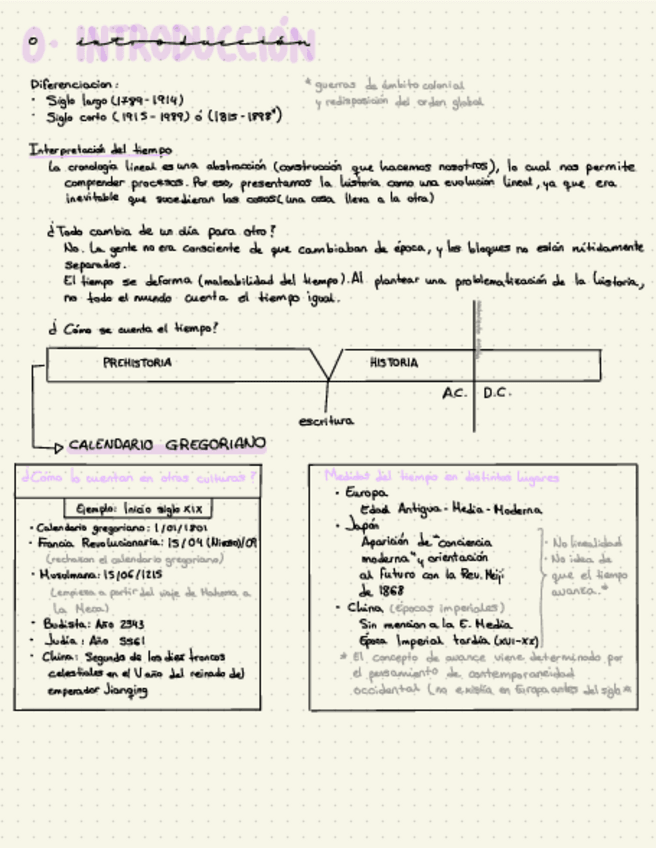 0. INTRODUCCIÓN
introducción
Diferenciacion:
· Siglo largo (1789-1914)
· Siglo corto (1915-1989) ó (1815-1898*)
* guerras de ámbito colonial
y redisposición del orden global
Interpretación del tiempo
La cronología lineal es una abstracción (construcción que hacemos nosotros), lo cual nos permite
comprender procesos. Por eso, presentamos la historia como una evolución lineal, ya que era
inevitable que sucedieran las cosas (una cosa lleva a la otra)
¿Todo cambia de un día para otro?
No. La gente no era consciente de que cambiaban de época, y los bloques no están nítidamente
separados.
El tiempo se deforma (maleabilidad del tiempo). Al plantear una problematización de la historia,
no todo el mundo cuenta el tiempo igual.
¿Cómo se cuenta el tiempo?
PREHISTORIA
HISTORIA
A.C.
D.C.
escritura
CALENDARIO GREGORIANO
¿Cómo lo cuentan en otras culturas?
Ejemplo: Inicio siglo XIX
· Calendario gregoriano: 1/01/1801
· Francia Revolucionaria: 15/04 (Nivoso)/09
(rechazan el calendario gregoriano)
· Musulmana: 15/06/1215
(empieza a partir del viaje de Mahoma a
La Meca)
· Budista: Año 2343
· Judía: Año 5561
· China: Segundo de los diez troncos
celestiales en el V año del reinado del
emperador Jianqing
Medidas del tiempo en distintos lugares
· Europa
Edad Antigua - Media - Moderna
· Japón
Aparición de "conciencia
moderna" y orientación
al futuro con la Rev. Meiji
de 1868
· No linealidad
· No idea de
que el tiempo
avanza.*
· China (Épocas imperiales)
Sin mención a la E. Media
Época Imperial tardía (XVI-XX)
* El concepto de avance viene determinado por
el pensamiento de contemporaneidad
occidental (no existía en Europa antes del siglo